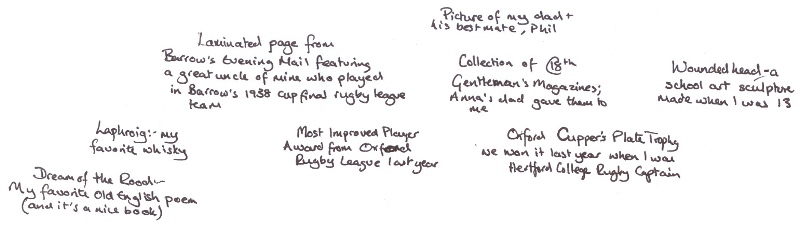 Picture of my dad +
his best mate, Phil
Laminated page from
Barrow's Evening Mail featuring
a great uncle of mine who played
in Barrow's 1938 cup final rugby league
team
Collection of 18th
Gentleman's Magazines;
Anna's dad gave them to
me
Wounded head - a
school art sculpture
made when I was 13
Laphroig:- my
favorite whisky
Most Improved Player
Award from Oxford
Rugby League last year
Oxford Cupper's Plate Trophy
we won it last year when I was
Hertford College Rugby Captain
Dream of the Rood:-
My favorite Old English poem
(and it's a nice book)